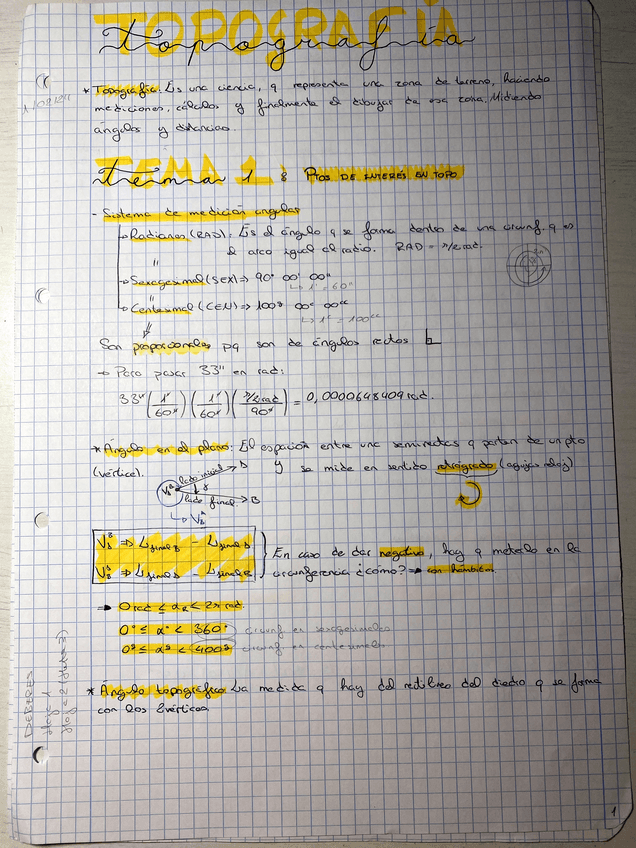 TOPOGRAFÍA
topografía
* Topografía: Es una ciencia, q representa una zona de terreno, haciendo
mediciones, cálculos y finalmente el dibujar de esa zona. Midiendo
ángulos y distancias.
TEMA 1
tema 1 : PTOS DE INTERÉS EN TOPO
- Sistema de medición angular
→ Radianes (RAD): Es el ángulo q se forma dentro de una circunf. q es
el arco igual al radio. RAD = π/2 rad.
"
→ Sexagesimal (SEX) ⇒ 90° 00' 00"
↳ 1' = 60"
"
→ Centesimal (CEN) ⇒ 100g 00c 00cc
↳ 1c = 100cc
Son proporcionales pq son de ángulos rectos
→ Para pasar 33" en rad:
33" (1'/60") (1°/60') (π/2 rad/90°) = 0,0000648409 rad.
* Ángulo en el plano: El espacio entre una semirectas q parten de un pto
(vértice). y se mide en sentido retrógrado (agujas reloj)
lado inicial A
V
lado final B
V_A^B ⇒ L final B - L final A
V_B^A ⇒ L final A - L final B
En caso de dar negativo, hay q meterlo en la
circunferencia ¿cómo? →
→ 0 rad ≤ α_R < 2π rad.
0° ≤ α° < 360° circunf en sexagesimales
0g ≤ αg < 400g circunf en centesimales
* Ángulo topográfico: La medida q hay del rectilíneo del diedro q se forma
con los 2 vérticos.
DEBERES
Hoja 1
1